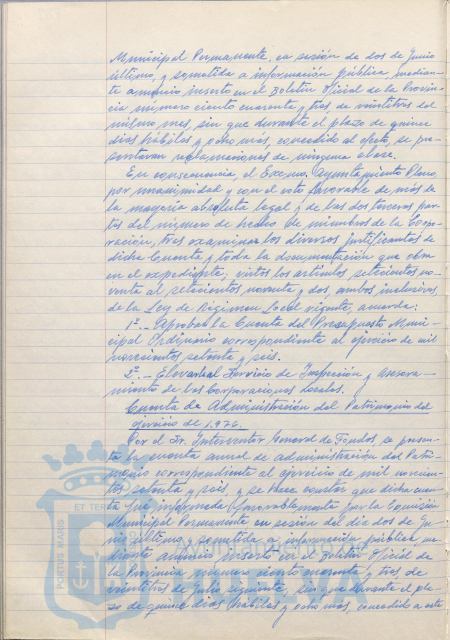 Municipal Permanente, en sesión de dos de Junio
último, y sometida a información pública, median-
te anuncio inserto en el Boletín Oficial de la Provin-
cia número ciento cuarenta y tres de veintitrés del
mismo mes, sin que durante el plazo de quince
días hábiles y ocho más, concedido al efecto, se pre-
sentaran reclamaciones de ninguna clase.
En consecuencia, el Excmo. Ayuntamiento Pleno,
por unanimidad y con el voto favorable de más de
la mayoría absoluta legal y de las dos terceras par-
tes del número de hecho de miembros de la Corpo-
ración, tras examinar los diversos justificantes de
dicha Cuenta y toda la documentación que obra
en el expediente; vistos los artículos setecientos no-
venta al setecientos noventa y dos, ambos inclusives,
de la Ley de Régimen Local vigente, acuerda:
1º.- Aprobar la Cuenta del Presupuesto Muni-
cipal Ordinario correspondiente al ejercicio de mil
novecientos setenta y seis.
2º.- Elevarla al Servicio de Inspección y Asesora-
miento de las Corporaciones Locales.
Cuenta de Administración del Patrimonio del
ejercicio de 1.976.
Por el Sr. Interventor General de Fondos, se presen-
ta la cuenta anual de administración del Patri-
monio correspondiente al ejercicio de mil novecien-
tos setenta y seis, y se hace constar que dicha cuen-
ta fue informada favorablemente por la Comisión
Municipal Permanente en sesión del día dos de Ju-
nio último y sometida a información pública me-
diante anuncio inserto en el Boletín Oficial de
la Provincia número ciento cuarenta y tres de
veintitrés de Junio siguiente, sin que durante el pla-
zo de quince días hábiles y ocho más, concedido a este
PORTUS MARIS
ET TERRAE